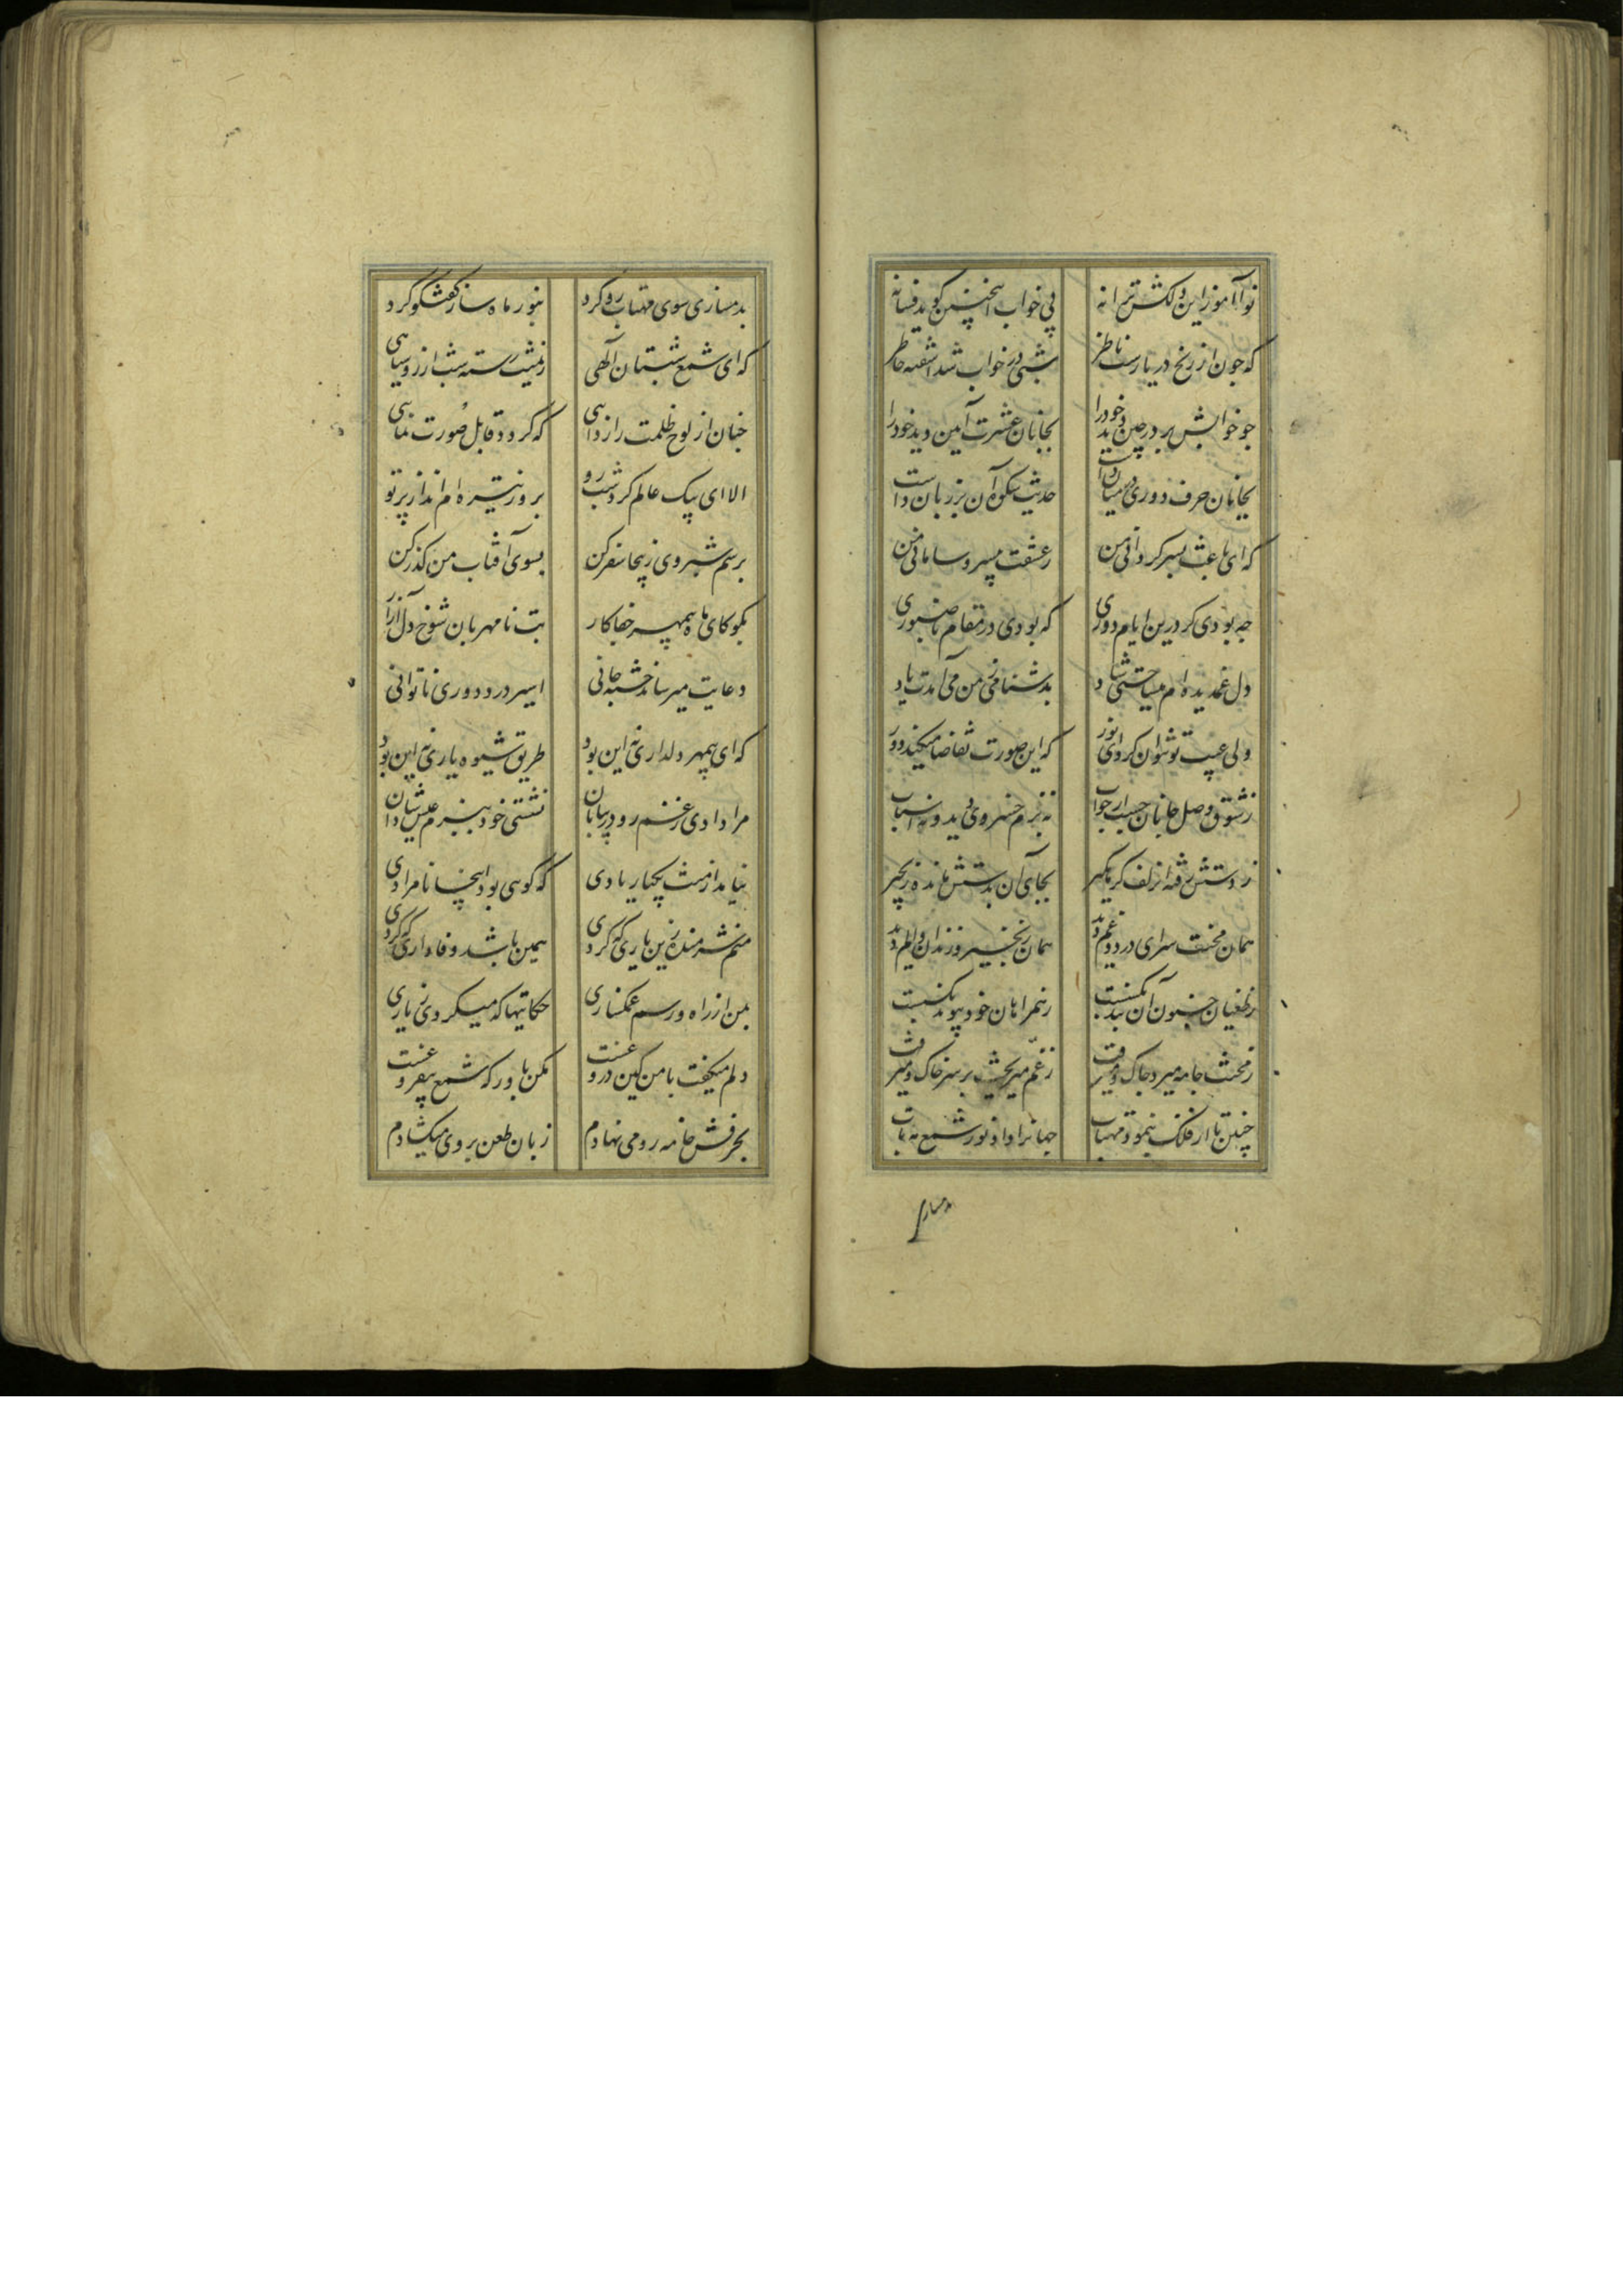 نوا آموز این دلکش ترانه پی خواب اینچنین گوید فسانه
که چون از رنج دریا رست ناظر شبی در خواب شد آشفته خاطر
چو خوابش برد در چین دید خود را بجانان عشرت آیین دید خود را
بجانان حرف دوری در میان داشت حدیث شکوه آن بر زبان داشت
که ای باعث بسر گردانی من ز عشقت بی سر و سامانی من
چه بودی گر درین ایام دوری که بودی در مقام ناصبوری
دل غمدیده‌ام میساختی شاد بدشنامی ز من می‌آمدت یاد
ولی عیب تو نتوان کرد ای نور که این صورت تقاضا میکند دور
ز شوق وصل جانان جست از خواب نه بزم خسروی دید و نه اسباب
ز دستش رفته آن زلف گرهگیر بجای آن بدستش مانده زنجیر
همان محنت سرای درد و غم دید همان زنجیر و زندان و الم دید
ز طغیان جنون آن بند بگسست ز همراهان خود پیوند بگسست
ز محنت جامه میزد چاک و میرفت ز غم میریخت بر سر خاک و میرفت
چنین تا از فلک بنمود مهتاب جهانرا داد نور شمع مه تاب
دمساری
بدمسازی سوی مهتاب رو کرد بنور ماه ساز گفتگو کرد
که ای شمع شبستان الهی ز نمنیت رسته شب از روسیاهی
چنان از لوح ظلمت را زدایی که گردد قابل صورت نمایی
الا ای پیک عالم گرد شبرو بروز تیره‌ام انداز پرتو
برسم شبروی زینجا سفر کن بسوی آفتاب من گذر کن
بگو کای ماه بیمهر جفاکار بت نامهربان شوخ دل آزار
دعایت میرساند خسته جانی اسیر درد دوری ناتوانی
که ای بیمهر دلداری نه این بود طریق شیوه یاری نه این بود
مرا دادی ز غم رو در بیابان نشستی خود ببزم عیش شادان
نیامد از منت یکبار یادی که گویی بود اینجا نامرادی
منم شرمنده زین یاری که کردی همین باشد وفاداری که کردی
بمن از راه و رسم غمگساری حکایتها که میکردی ز یاری
دلم میگفت با من کین دروغست مکن باور که شمع بیفروغست
بحرفش خامه رو می نهادم زبان طعن بر وی میگشادم